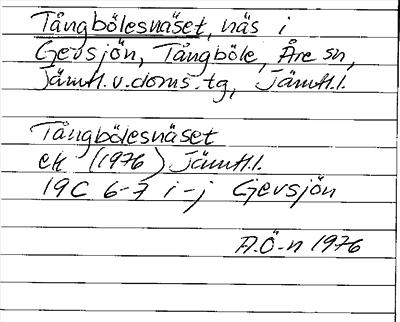 Tångbölesnäset, näs i
Gevsjön, Tångböle, Åre sn,
Jämtl.v.doms.tg, Jämtl.l.
Tångbölesnäset
ek (1976) Jämtl.l.
19C 6-7 i-j Gevsjön
A.Ö-n 1976